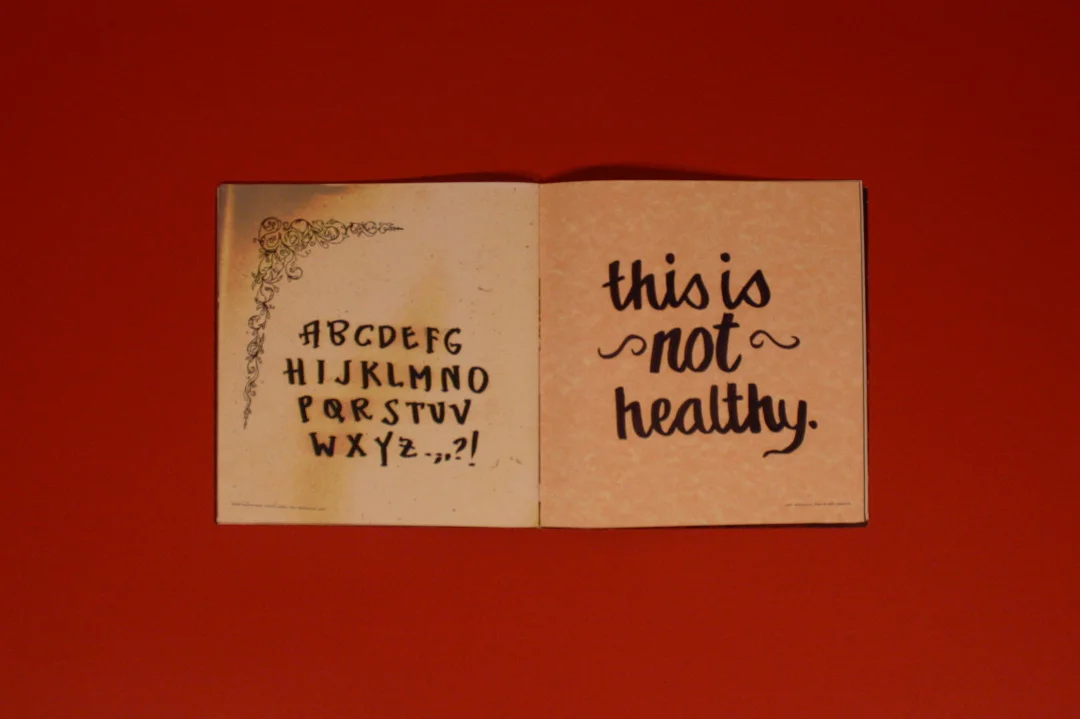 ABCDEFG
HIJKLMNO
PQRSTUV
WXYZ.,;,?!
this is
not
healthy.